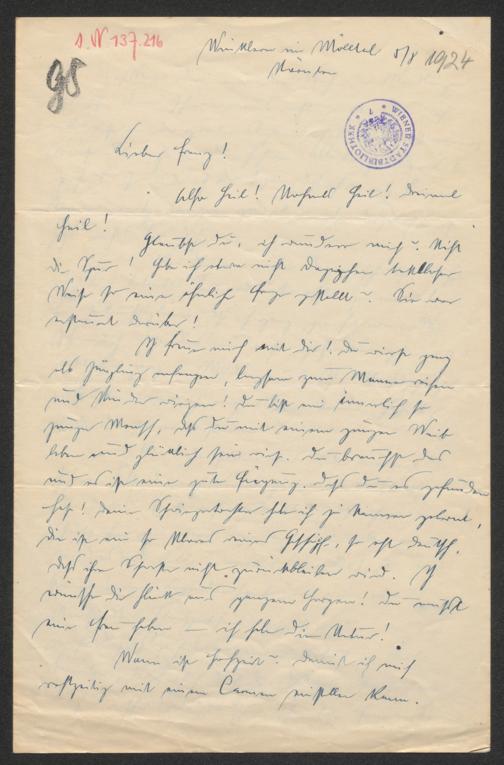 I. N 137.216
95
Winklern im Mölltal 5/8 1924
Kärnten
WIENER STADTBIBLIOTHEK
Lieber Franz!
Also Heil! Nochmals Heil! Dreimal
Heil!
Glaubst du, ich wundere mich? Nicht
die Spur! Habe ich etwa nicht
Weise so eine ähnliche Frage gestellt? Sie war
erstaunt darüber!
Ich freue mich mit dir! Du wirst ganz
als Jüngling anfangen, langsam zum Manne reifen
und Kinder wiegen! Du bist ein innerlich so
junger Mensch, daß du mit einem jungen Weib
leben und glücklich sein wirst. Du brauchst das
und es ist eine gute Fügung, daß du es gefunden
hast! Deine habe ich ja kennen gelernt,
die ist ein so klares Geschöpf, so echt deutsch,
daß ihre Schwester nicht zurückbleiben wird. Ich
wünsche dir Glück aus ganzem Herzen! Du mußt
eine Frau haben — ich habe die Natur!
Wann ist Hochzeit? Damit ich mich
rechtzeitig mit einem Carmen einstellen kann.